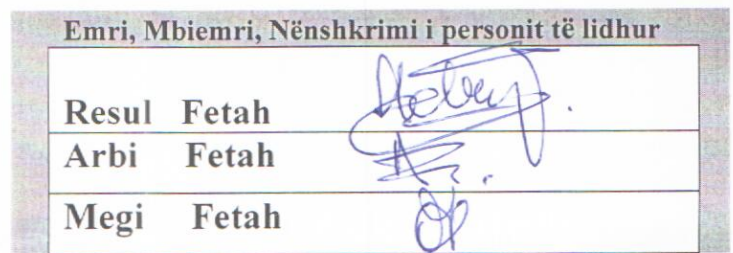 Emri, Mbiemri, Nënshkrimi i personit të lidhur
Resul Fetah
Arbi Fetah
Megi Fetah